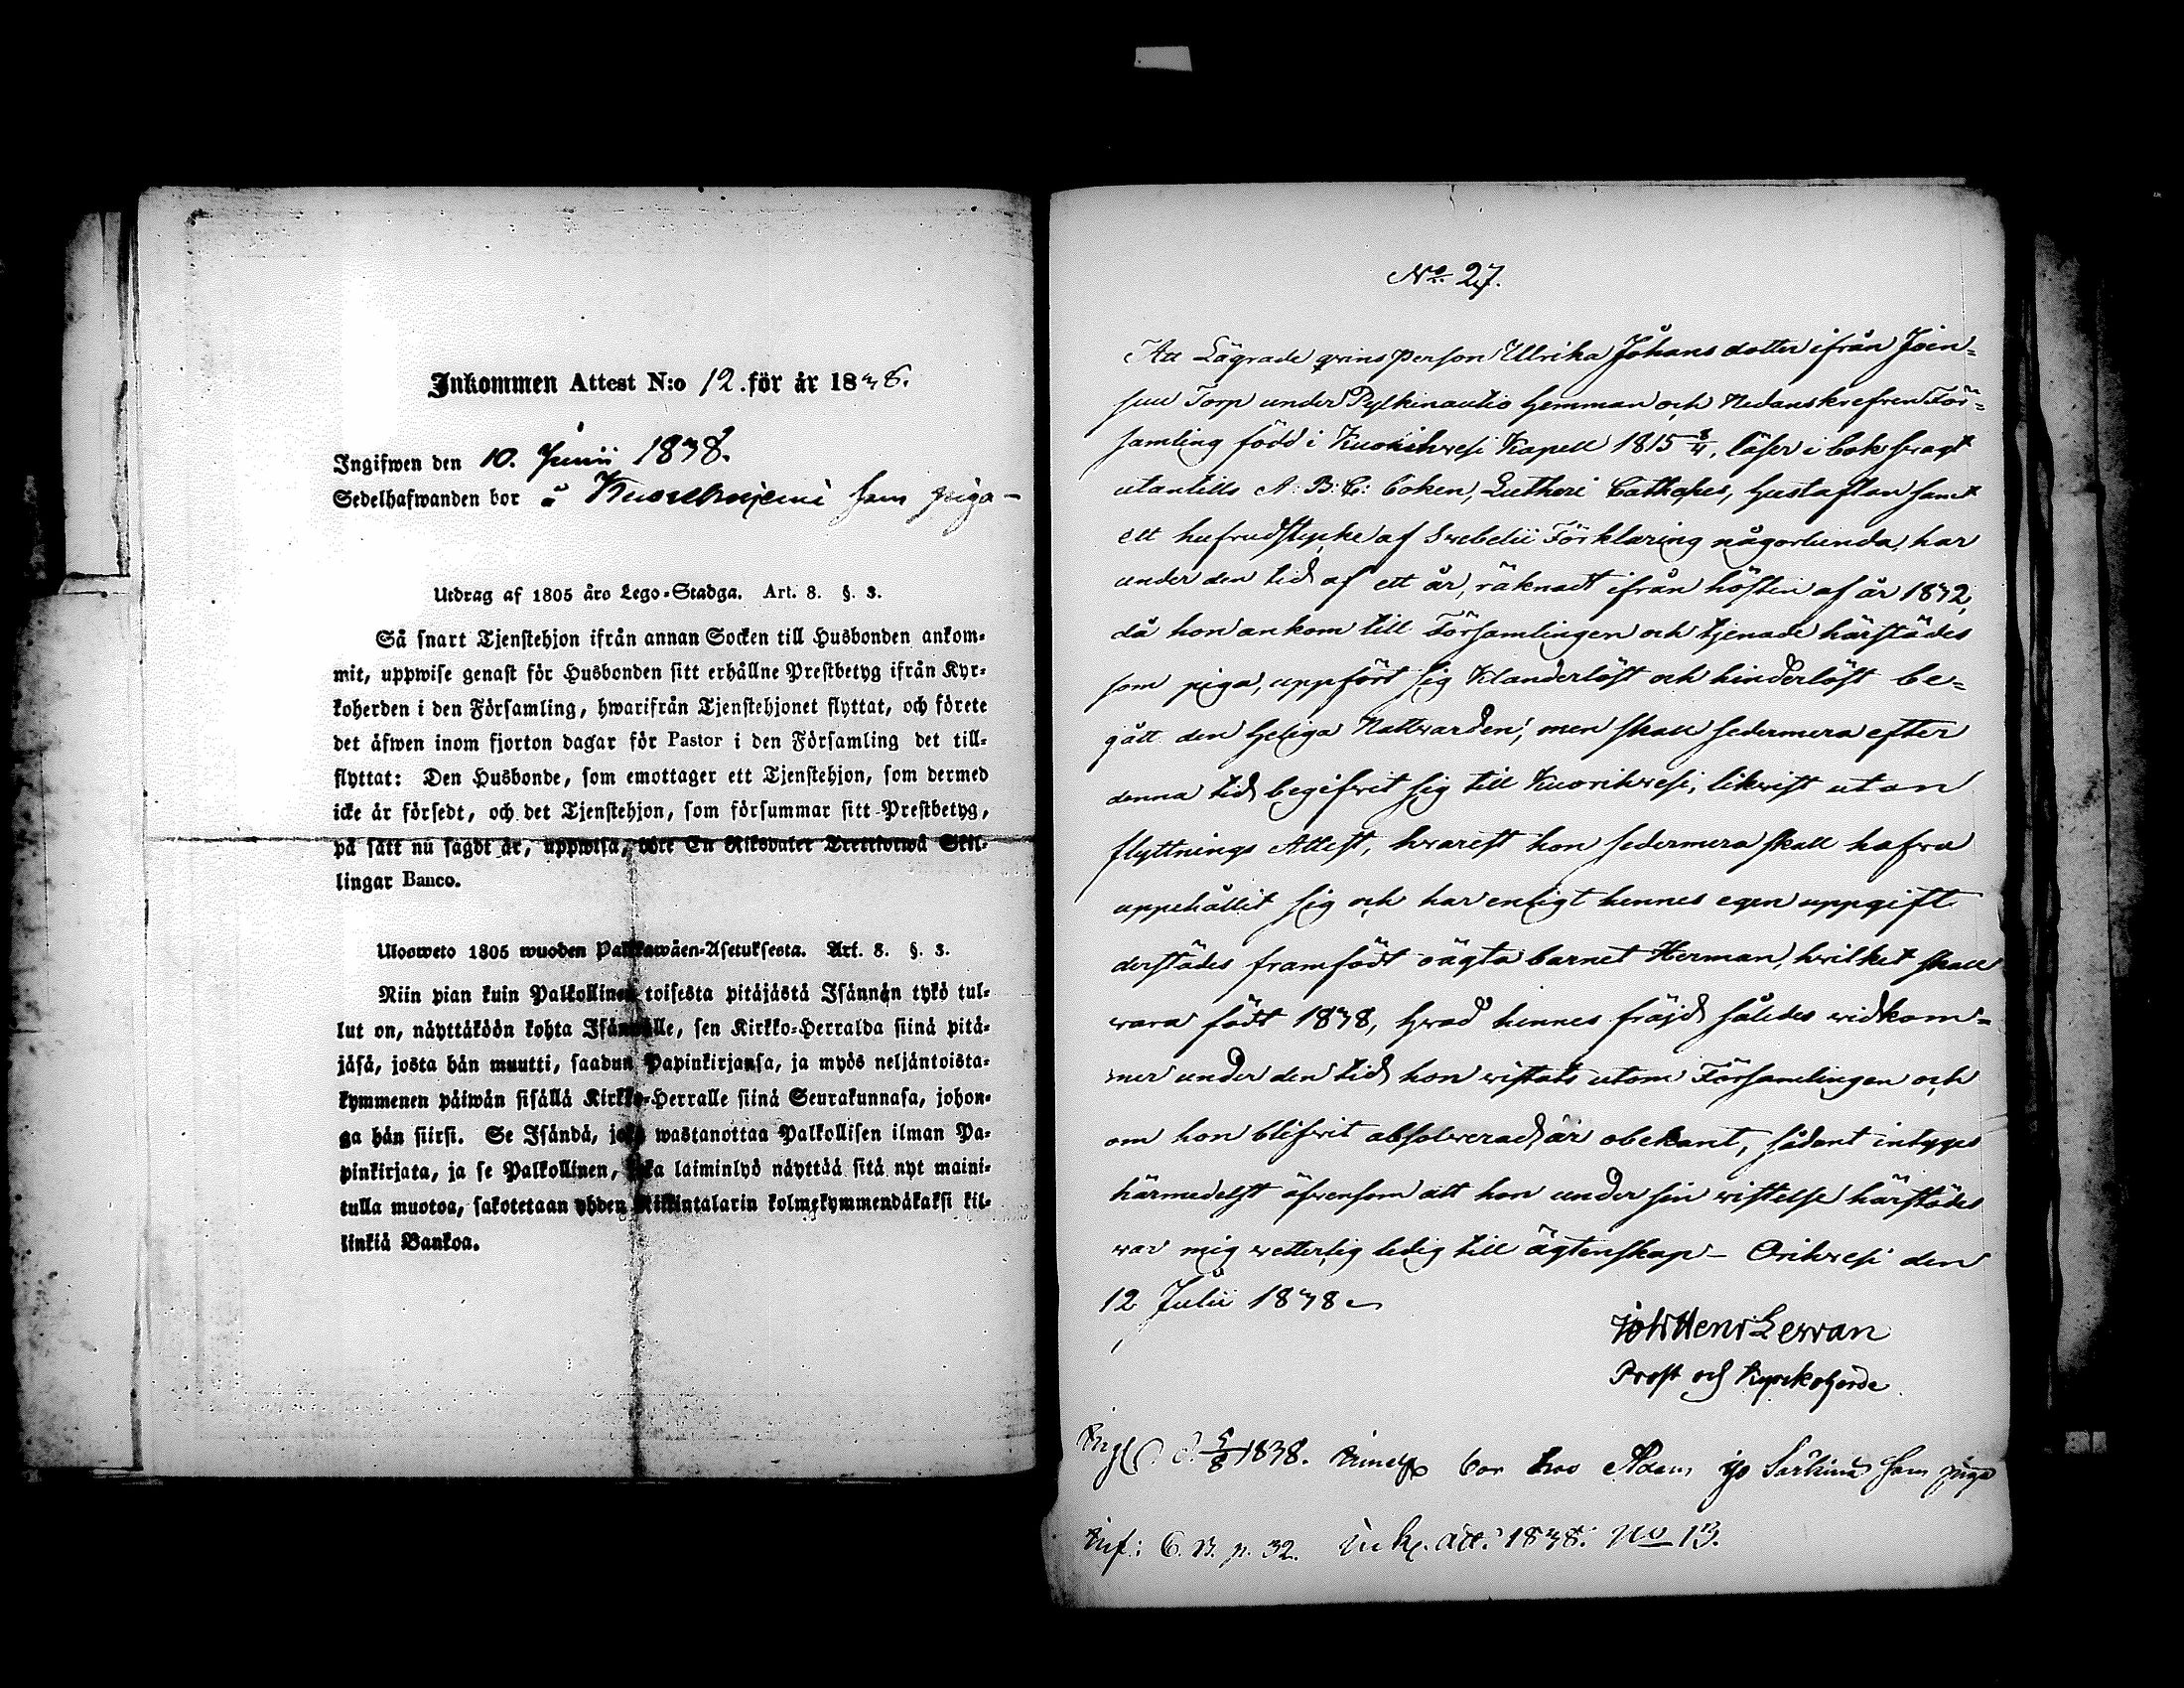 Inkommen Attest N:o 12. för år 1838.
Ingifwen den 10. Junii 1838.
Sedelhafwanden bor å som piga –
Utdrag af 1805 års Lego-Stadga. Art. 8. §. 3.
Så snart Tjenstehjon ifrån annan Socken till Husbonden ankom-
mit, uppwise genast för Husbonden sitt erhållne Prestbetyg ifrån Kyr-
koherden i den Församling, hwarifrån Tjenstehjonet flyttat, och förete
det äfwen inom fjorton dagar för Pastor i den Församling det till-
flyttat: Den Husbonde, som emottager ett Tjenstehjon, som dermed
icke är försedt, och det Tjenstehjon, som försummar sitt Prestbetyg,
på sätt nu sagdt är, uppwisa, böte En Riksdaler Trettiotwå Skil-
lingar Banco.
Ulosweto 1805 wuoden Palkkawäen-Asetuksesta. Art. 8. §. 3.
Niin pian kuin Palkollinen toisesta pitäjästä Isännän tykö tul-
lut on, näyttäköön kohta Isännälle, sen Kirkko-Herralda siinä pitä-
jäsä, josta hän muutti, saadun Papinkirjansa, ja myös neljäntoista-
kymmenen päiwän sisällä Kirkko-Herralle siinä Seurakunnasa, johon-
ga hän siirsi. Se Isändä, joka wastanottaa Palkollisen ilman Pa-
pinkirjata, ja se Palkollinen, joka laiminlyö näyttää sitä nyt maini-
tulla muotoa, sakotetaan yhden Rikintalarin kolmekymmendäkaksi kil-
linkiä Bankoa.
No 27.
Att Lägrade qwinsperson Ulrika Johansdotter ifrån Joen-
suu Torp under Pylkinautio Hemman och Nedanskrefven För-
samling född i Kuorihwesi Kapell 1815 8/4, läser i bok swagt
utantills A: B: C: boken, Lutheri Catheses, Hustaflan samt
ett hufvudstycke af Svebelii Förklaring någorlunda, har
under den tid af ett år, räknadt ifrån hösten af år 1832,
då hon ankom till Församlingen och tjenade härstädes
som piga, uppfört sig klanderlöst och hinderlöst be-
gått den Heliga Nattvarden; men skall sedermera efter
denna tid begifvit sig till Kuorihwesi, likvist utan
flyttnings Attest, hvarest hon sedermera skall hafva
uppehållit sig och har enligt hennes egen uppgift
derstädes framfödt oägta barnet Herman, hvilket skall
vara födt 1838, Hvad hennes fräjd således widkom-
mer under den tid hon vistats utom Församlingen och
om hon blifvit absolverad, är obekant, sådant intygas
härmedelst äfvensom att hon under sin vistelse härstädes
var mig vetterlig ledig till ägtenskap – Orihwesi den
12 Julii 1838
Joh Henr Lewan
Prost och Kyrckoherde
Ingl. d. 5/8 1838. bor hos Adam som piga
Inf: C. B. p. 32. Ink. att: 1838. No 13.